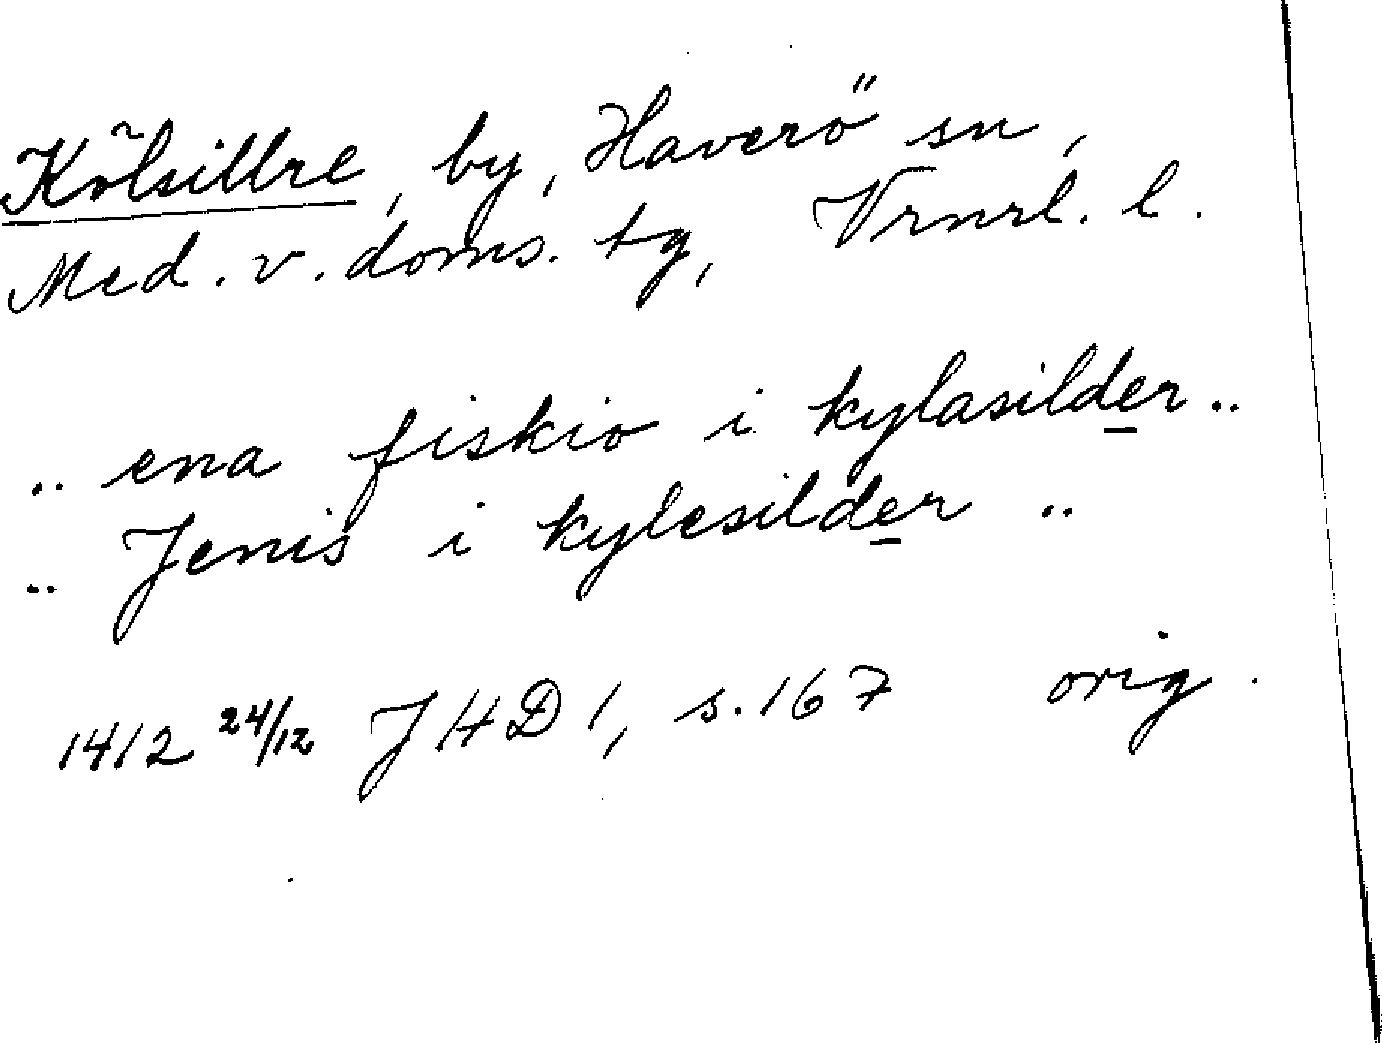 Kölsillre, by, Haverö sn,
Med. v. doms. tg, Vrnrl. l.
.. ena fiskio i kylasilder ..
.. Jenis i kylesilder ..
1412 24/12 JHD 1, s. 167 orig.